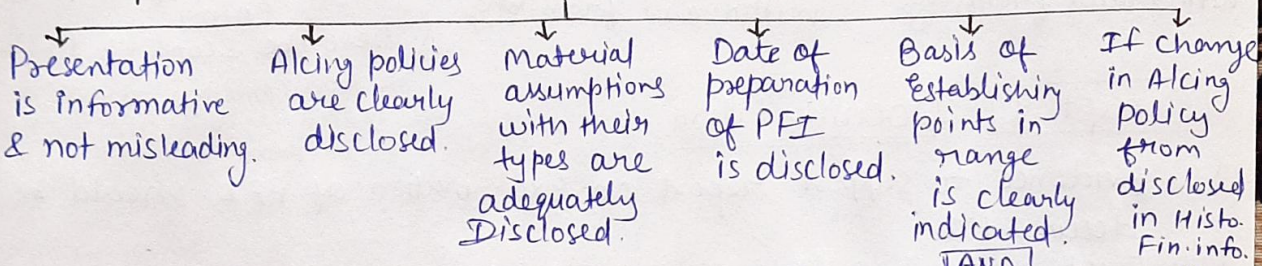 Presentation
is informative
& not misleading.
A/cing policies
are clearly
disclosed.
Material
assumptions
with their
types are
adequately
Disclosed.
Date of
preparation
of PFI
is disclosed.
Basis of
Establishing
points in
range
is clearly
indicated.
If change
in A/cing
Policy
from
disclosed
in Histo.
Fin. info.